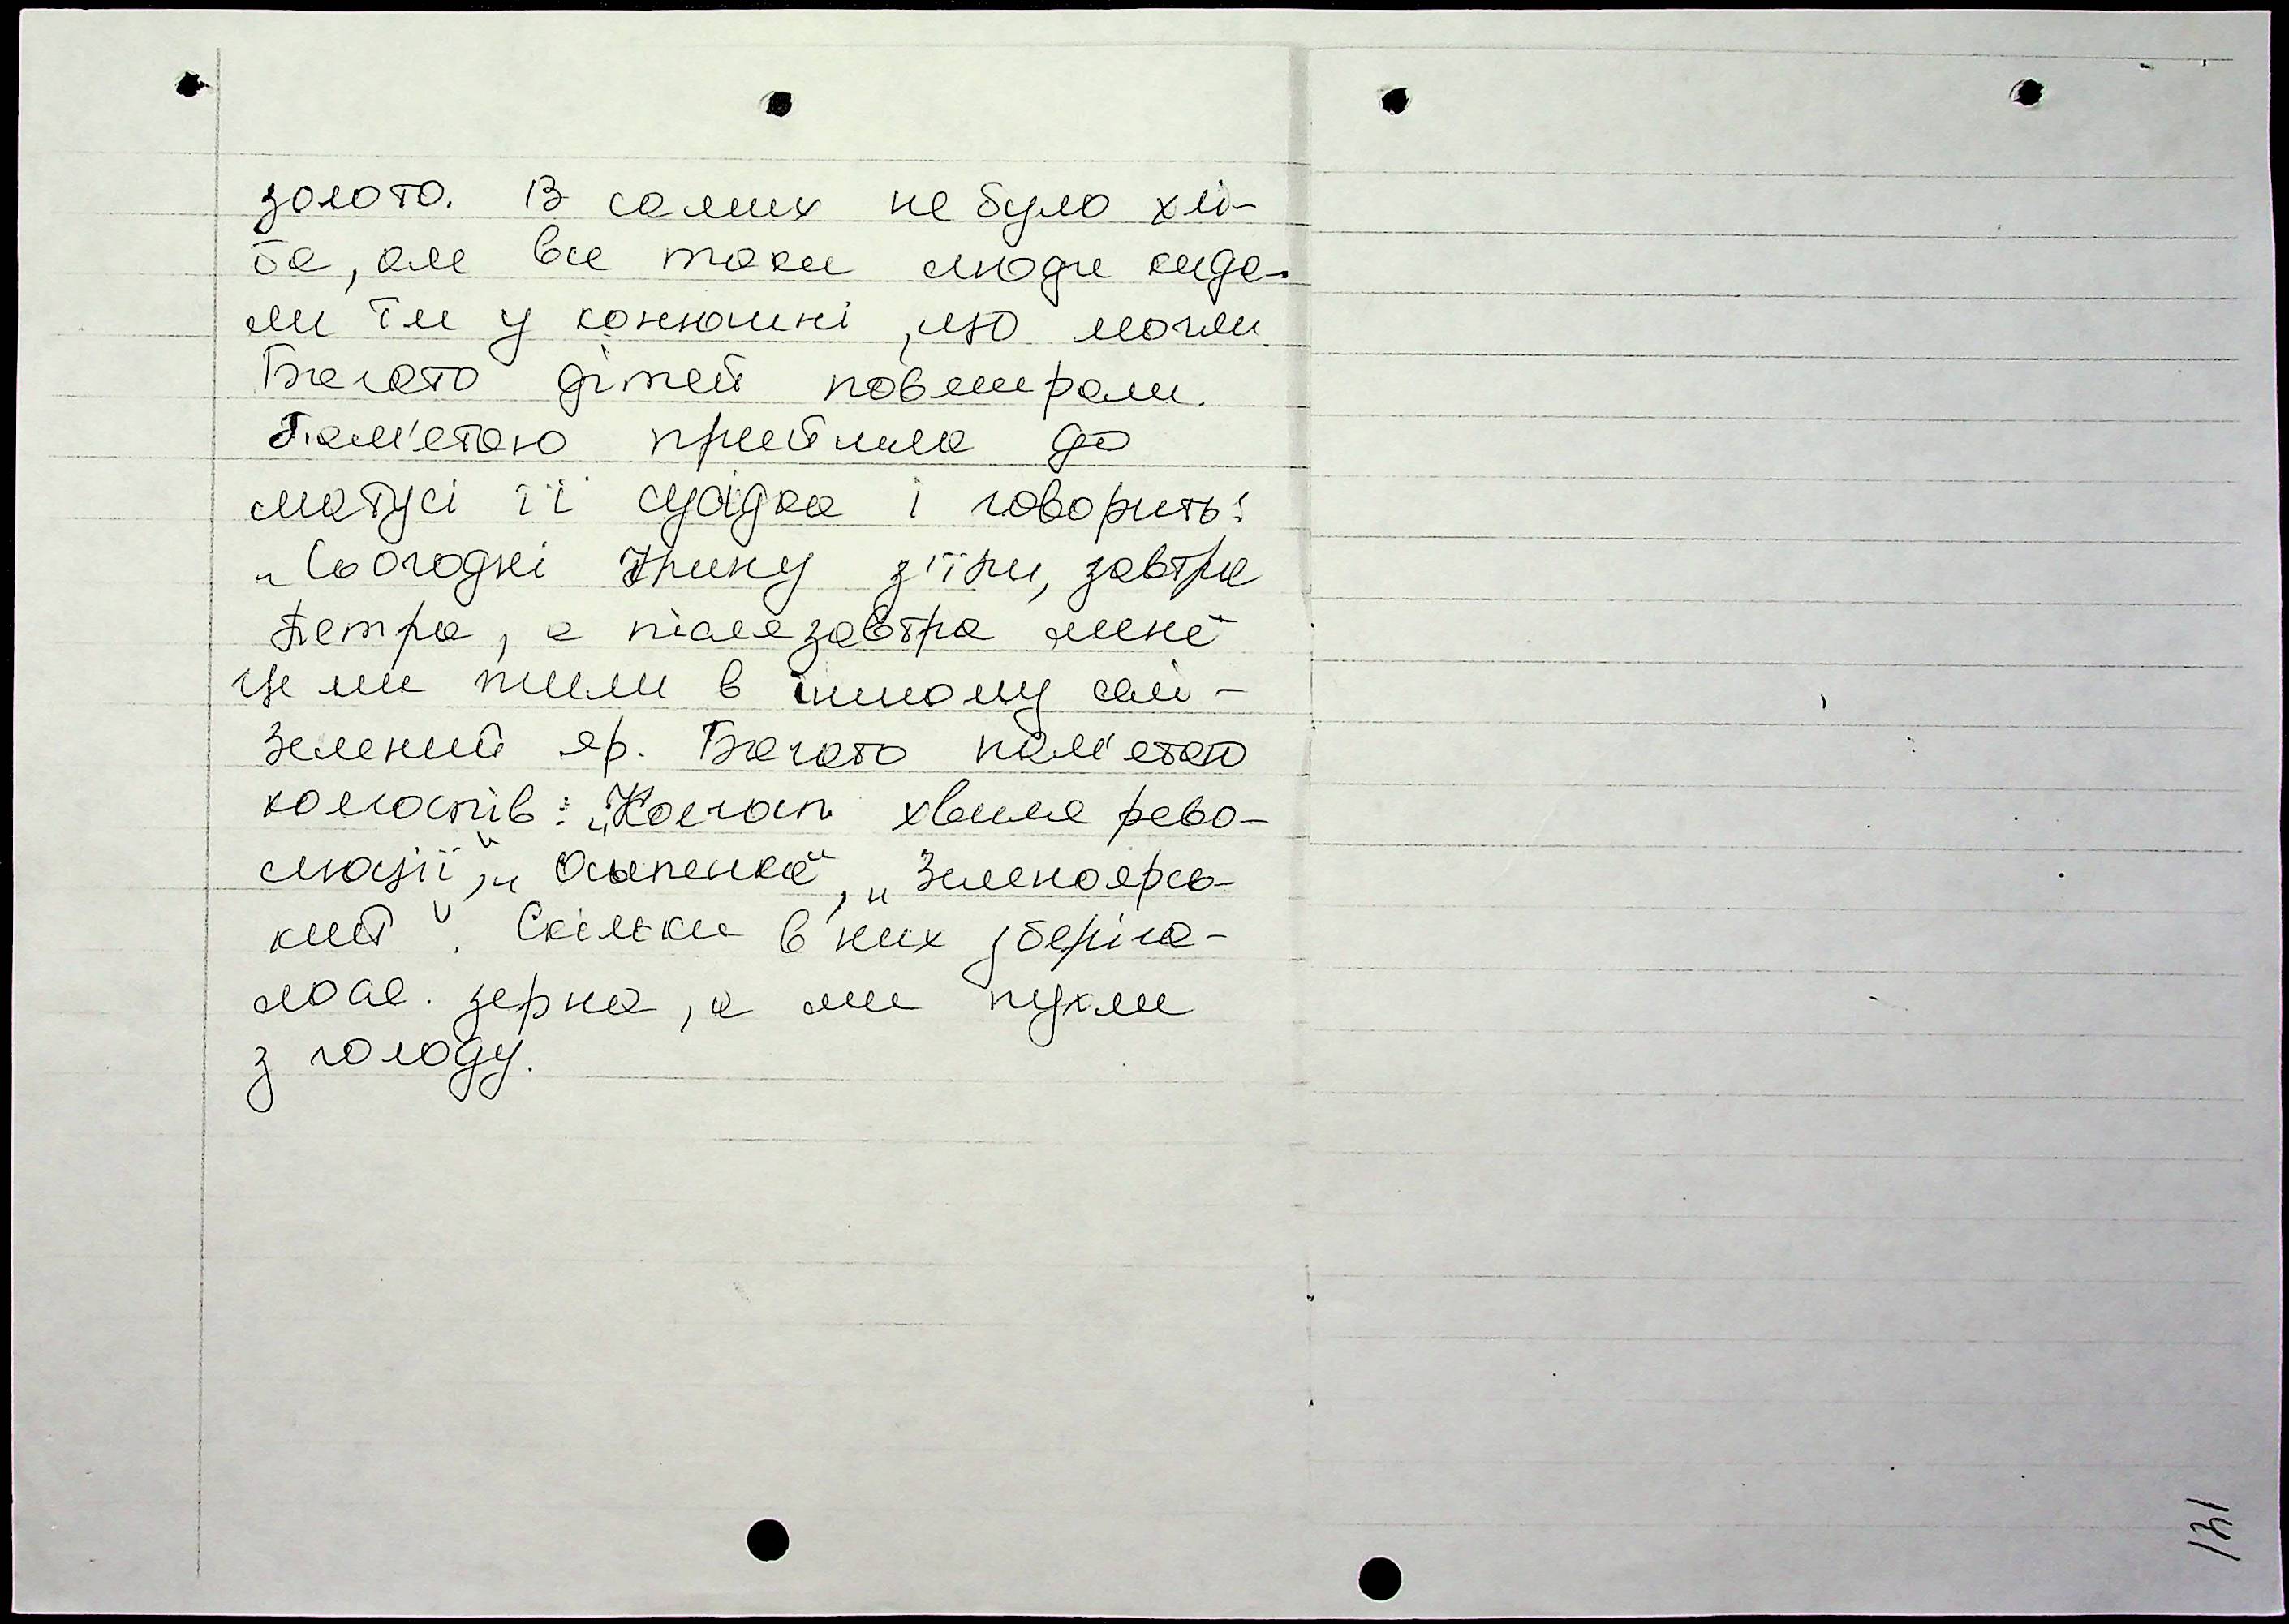 золото. В самих не було хлі-
ба, але все таки люди кида-
ли їм у конюшні, що могли.
Багато дітей повмирали.
Пам'ятаю прийшла до
матусі її сусідка і говорить:
„Сьогодні Ірину з'їли, завтра
Петра, а післязавтра мене"
Це ми жили в іншому селі -
Зелений яр. Багато пам'ятаю
колгоспів: „Колгосп хвиля рево-
люції", „Осыпенка", „Зеленоярсь-
кий". Скільки в них зберіга-
лося. зерна, а ми пухли
з голоду.
141